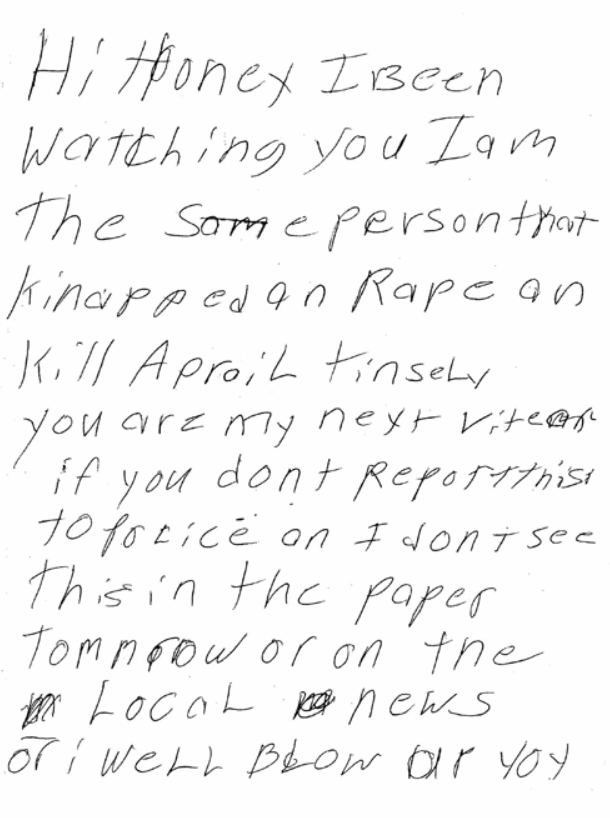 Hi Honey I Been
Watching you I am
The Same person that
kinapped an Rape an
Kill Aproil tinsely
you are my next
if you dont Report this
to police an I dont see
this in the paper
Tomnrow or on the
Local news
or i well Blow